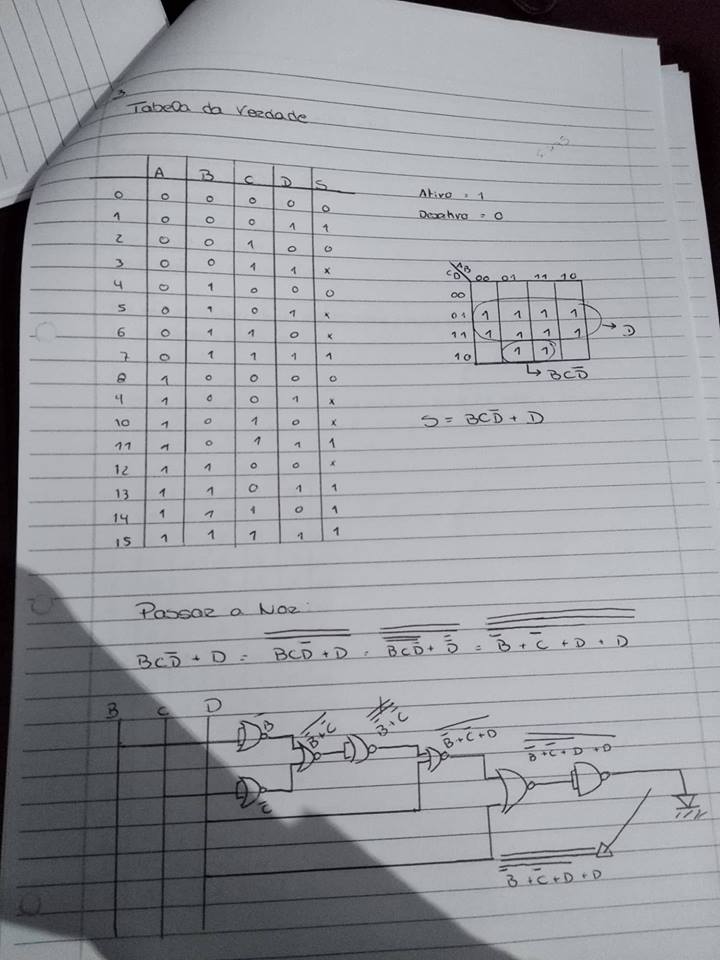 3
Tabela da Verdade
A B C D S
0 0 0 0 0 0
1 0 0 0 1 1
2 0 0 1 0 0
3 0 0 1 1 x
4 0 1 0 0 0
5 0 1 0 1 x
6 0 1 1 0 x
7 0 1 1 1 1
8 1 0 0 0 0
9 1 0 0 1 x
10 1 0 1 0 x
11 1 0 1 1 1
12 1 1 0 0 x
13 1 1 0 1 1
14 1 1 1 0 1
15 1 1 1 1 1
Ativo = 1
Desativo = 0
AB
CD 00 01 11 10
00
01 1 1 1 1
11 1 1 1 1 → D
10 1 1
→ BCD̅
S = BCD̅ + D
Passar a Nor:
BCD̅ + D = B̅C̅D̿ ̅+̅ ̅D̅ = B̿C̿D̿ + D̿ = B̅ + C̅ + D + D
B C D
B̅
C̅
B̅+C̅
B̅+C̅
B̅+C̅+D
B̅+C̅+D+D
B̅+C̅+D+D